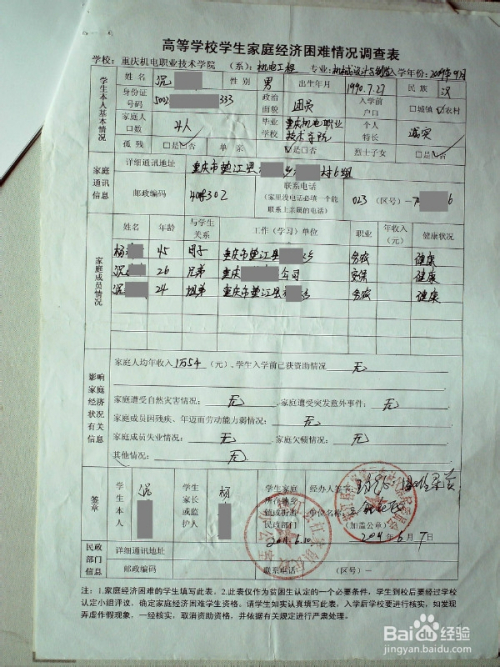 高等学校学生家庭经济困难情况调查表
学校：重庆机电职业技术学院 （系）：机电工程 专业：机械设计与制造 入学年份：2009年9月
学生本人基本情况
姓名 沉 性别 男 出生年月 1990.7.27 民族 汉
身份证号码 500 333 政治面貌 团员 入学前户口 □城镇 ☑农村
家庭人口数 4人 毕业学校 重庆机电职业技术学院 个人特长
孤残 □是 □否 单亲 □是 □否 烈士子女 □是 □否
家庭通讯信息
详细通讯地址 重庆市垫江县 村6组
邮政编码 408302 联系电话 023 （区号）- 6
（家里没电话必填一个能联系上亲属的电话）
家庭成员情况
姓名 年龄 与学生关系 工作（学习）单位 职业 年收入（元） 健康状况
杨 45 母子 重庆市垫江县 务农 健康
沉 26 兄弟 重庆 公司 健康
沉 24 重庆市垫江县 务农 健康
影响家庭经济状况有关信息
家庭人均年收入 1754 （元）。学生入学前已获资助情况 无
家庭遭受自然灾害情况： 无 。家庭遭受突发意外事件： 无
家庭成员因残疾、年迈而劳动能力弱情况： 无
家庭成员失业情况： 无 。家庭欠债情况： 无
其他情况： 无
签章
学生本人 沉 学生家长或监护人 杨 学生家庭所在地乡镇或街道民政部门 经办人签字：
单位名称：
（加盖公章）
2011年6月7日
民政部门信息
详细通讯地址
邮政编码 联系电话 （区号）-
注：1.家庭经济困难的学生填写此表。2.此表仅作为贫困生认定的一个必要条件，学生到校后要经过学校
认定小组评议，确定家庭经济困难学生资格。请学生如实认真填写此表，入学后学校要进行核实，如发现
弄虚作假现象，一经核实，取消资助资格，并依据有关规定进行严肃处理。
Baidu经验
jingyan.baidu.com